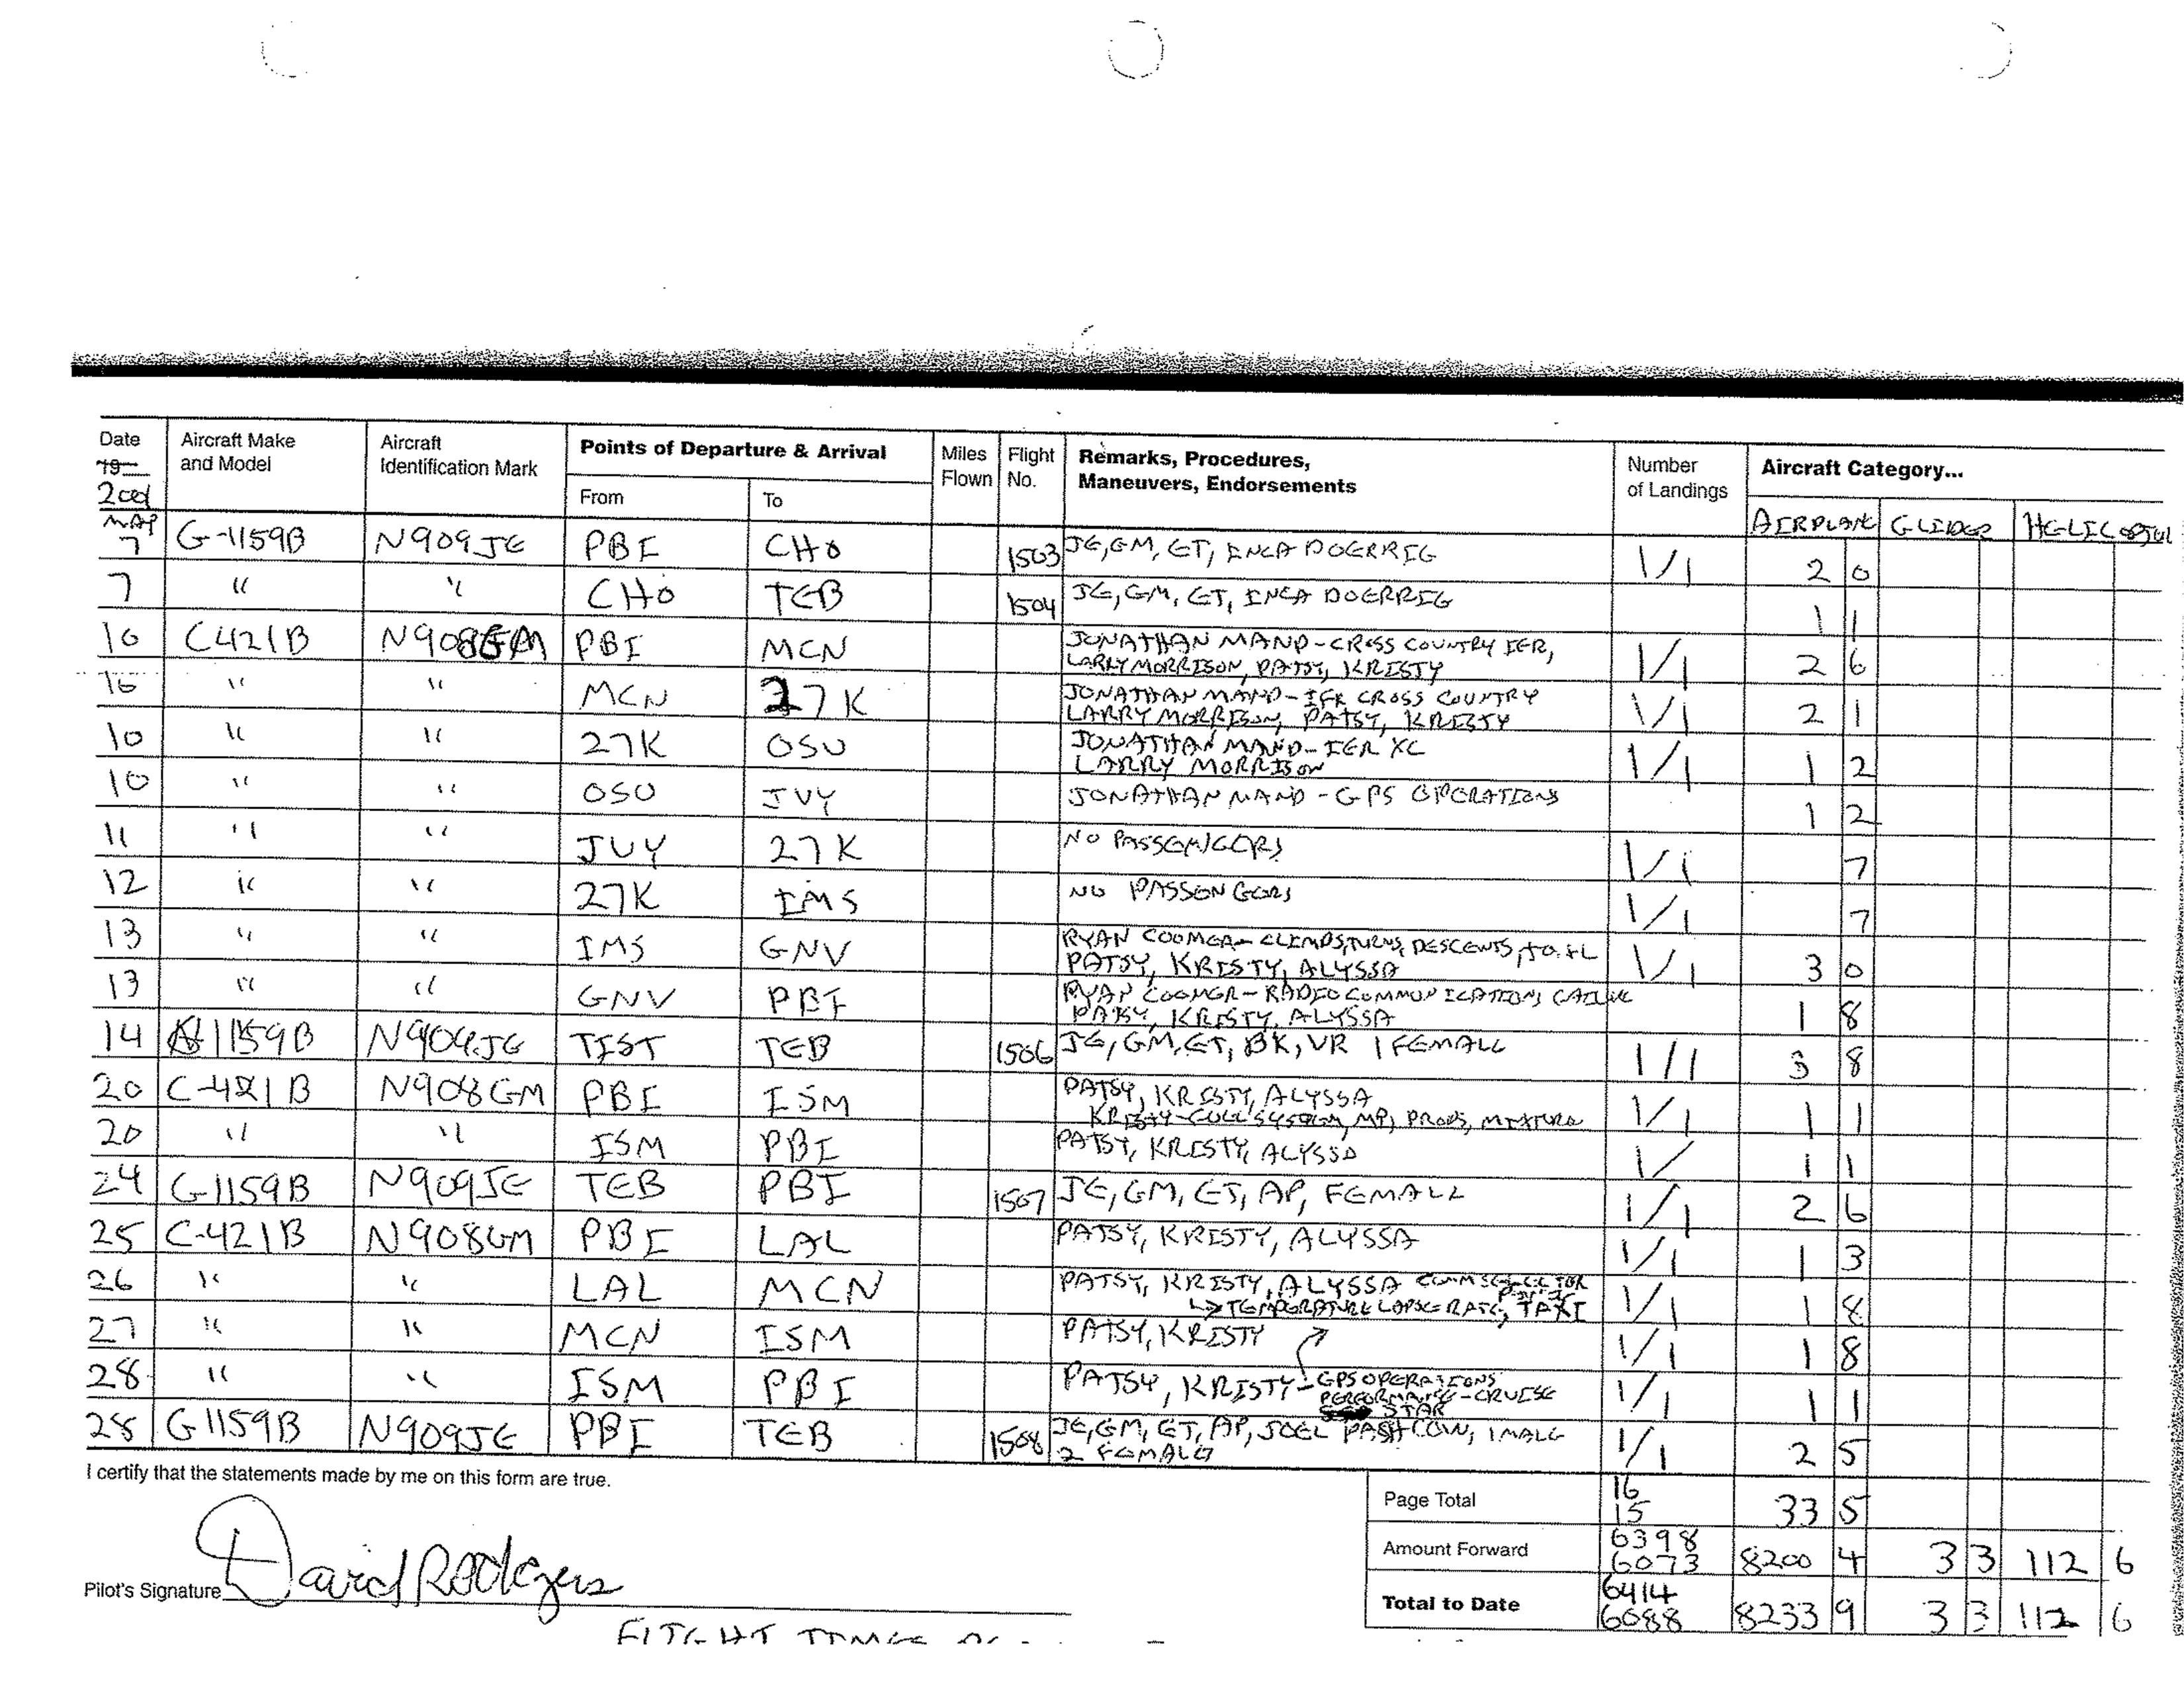 Date Aircraft Make and Model Aircraft Identification Mark Points of Departure & Arrival Miles Flown Flight No. Remarks, Procedures, Maneuvers, Endorsements Number of Landings Aircraft Category...
19
From To AIRPLANE GLIDER
MAY
7 G-1159B N909JE PBI CHO 1503 JE, GM, ET, DOERRIG 1/1 2 0
7 " " CHO TEB 1504 JE, GM, ET, DOERRIG 1 1
10 C421B PBI MCN JONATHAN MAND-CROSS COUNTRY IFR, 1/1 2 6
LARRY MORRISON, PATSY, KRISTY
10 " " MCN 27K JONATHAN MAND-IFR CROSS COUNTRY 1/1 2 1
LARRY MORRISON, PATSY, KRISTY
10 " " 27K OSU JONATHAN MAND-IFR XC 1/1 1 2
LARRY MORRISON
10 " " OSU JVY JONATHAN MAND-GPS OPERATIONS 1 2
11 " " JVY 27K NO PASSENGERS 1/1 7
12 " " 27K IMS NO PASSENGERS 1/1 7
13 " " IMS GNV RYAN COOMER-CLIMBS, TURNS, DESCENTS, TO+L 1/1 3 0
PATSY, KRISTY, ALYSSA
13 " " GNV PBI RYAN COOMER-RADIO COMMUNICATIONS 1 8
PATSY, KRISTY, ALYSSA
14 1159B N909JE TIST TEB 1506 JE, GM, ET, BK, VR 1 FEMALE 1/1 3 8
20 C-421B N908GM PBI ISM PATSY, KRISTY, ALYSSA 1/1 1 1
KRISTY-FUEL SYSTEM, MP, PROPS, MIXTURE
20 " " ISM PBI PATSY, KRISTY, ALYSSA 1/ 1 1
24 G1159B N909JE TEB PBI 1507 JE, GM, ET, AP, FEMALE 1/1 2 6
25 C-421B N908GM PBI LAL PATSY, KRISTY, ALYSSA 1/1 1 3
26 " " LAL MCN PATSY, KRISTY, ALYSSA 1/1 1 8
TEMPERATURE LAPSE RATE, TAXI
27 " " MCN ISM PATSY, KRISTY 1/1 1 8
28 " " ISM PBI PATSY, KRISTY-GPS OPERATIONS 1/1 1 1
PERFORMANCE-CRUISE
STAR
28 G1159B N909JE PBI TEB 1508 JE, GM, ET, AP, JOEL PASHCOW, 1 MALE 1/1 2 5
2 FEMALES
I certify that the statements made by me on this form are true.
Page Total 16 15 33 5
Amount Forward 6398 6073 8200 4 3 3 112 6
Total to Date 6414 6088 8233 9 3 3 112 6
Pilot's Signature David Rodgers
FLIGHT TIMES